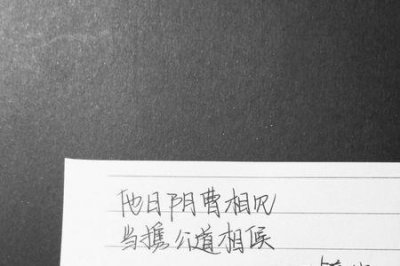 他日阴曹相见
当携公道相候